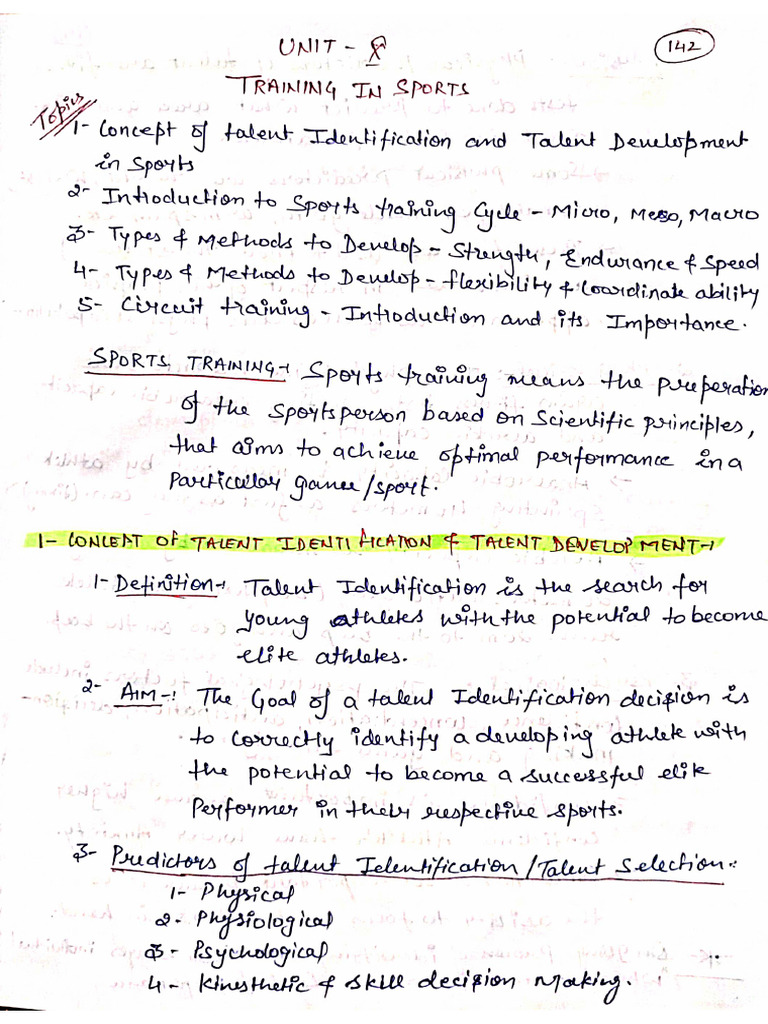 UNIT - X
142
TRAINING IN SPORTS
Topics
1- Concept of talent Identification and Talent Development
in Sports
2- Introduction to Sports training Cycle - Micro, Meso, Macro
3- Types & Methods to Develop - Strength, Endurance & Speed
4- Types & Methods to Develop - flexibility & Coordinate ability
5- Circuit training - Introduction and its Importance.
SPORTS TRAINING-: Sports training means the preperation
of the Sportsperson based on Scientific principles,
that aims to achieve optimal performance in a
Particular game/sport.
1- CONCEPT OF TALENT IDENTIFICATION & TALENT DEVELOPMENT-:
1- Definition-: Talent Identification is the search for
young athletes with the potential to become
elite athletes.
2- AIM-: The Goal of a talent Identification decision is
to correctly identify a developing athlete with
the potential to become a successful elite
Performer in their respective sports.
3- Predictors of talent Identification/Talent Selection:-
1- Physical
2- Physiological
3- Psychological
4- Kinesthetic & skill decision Making.